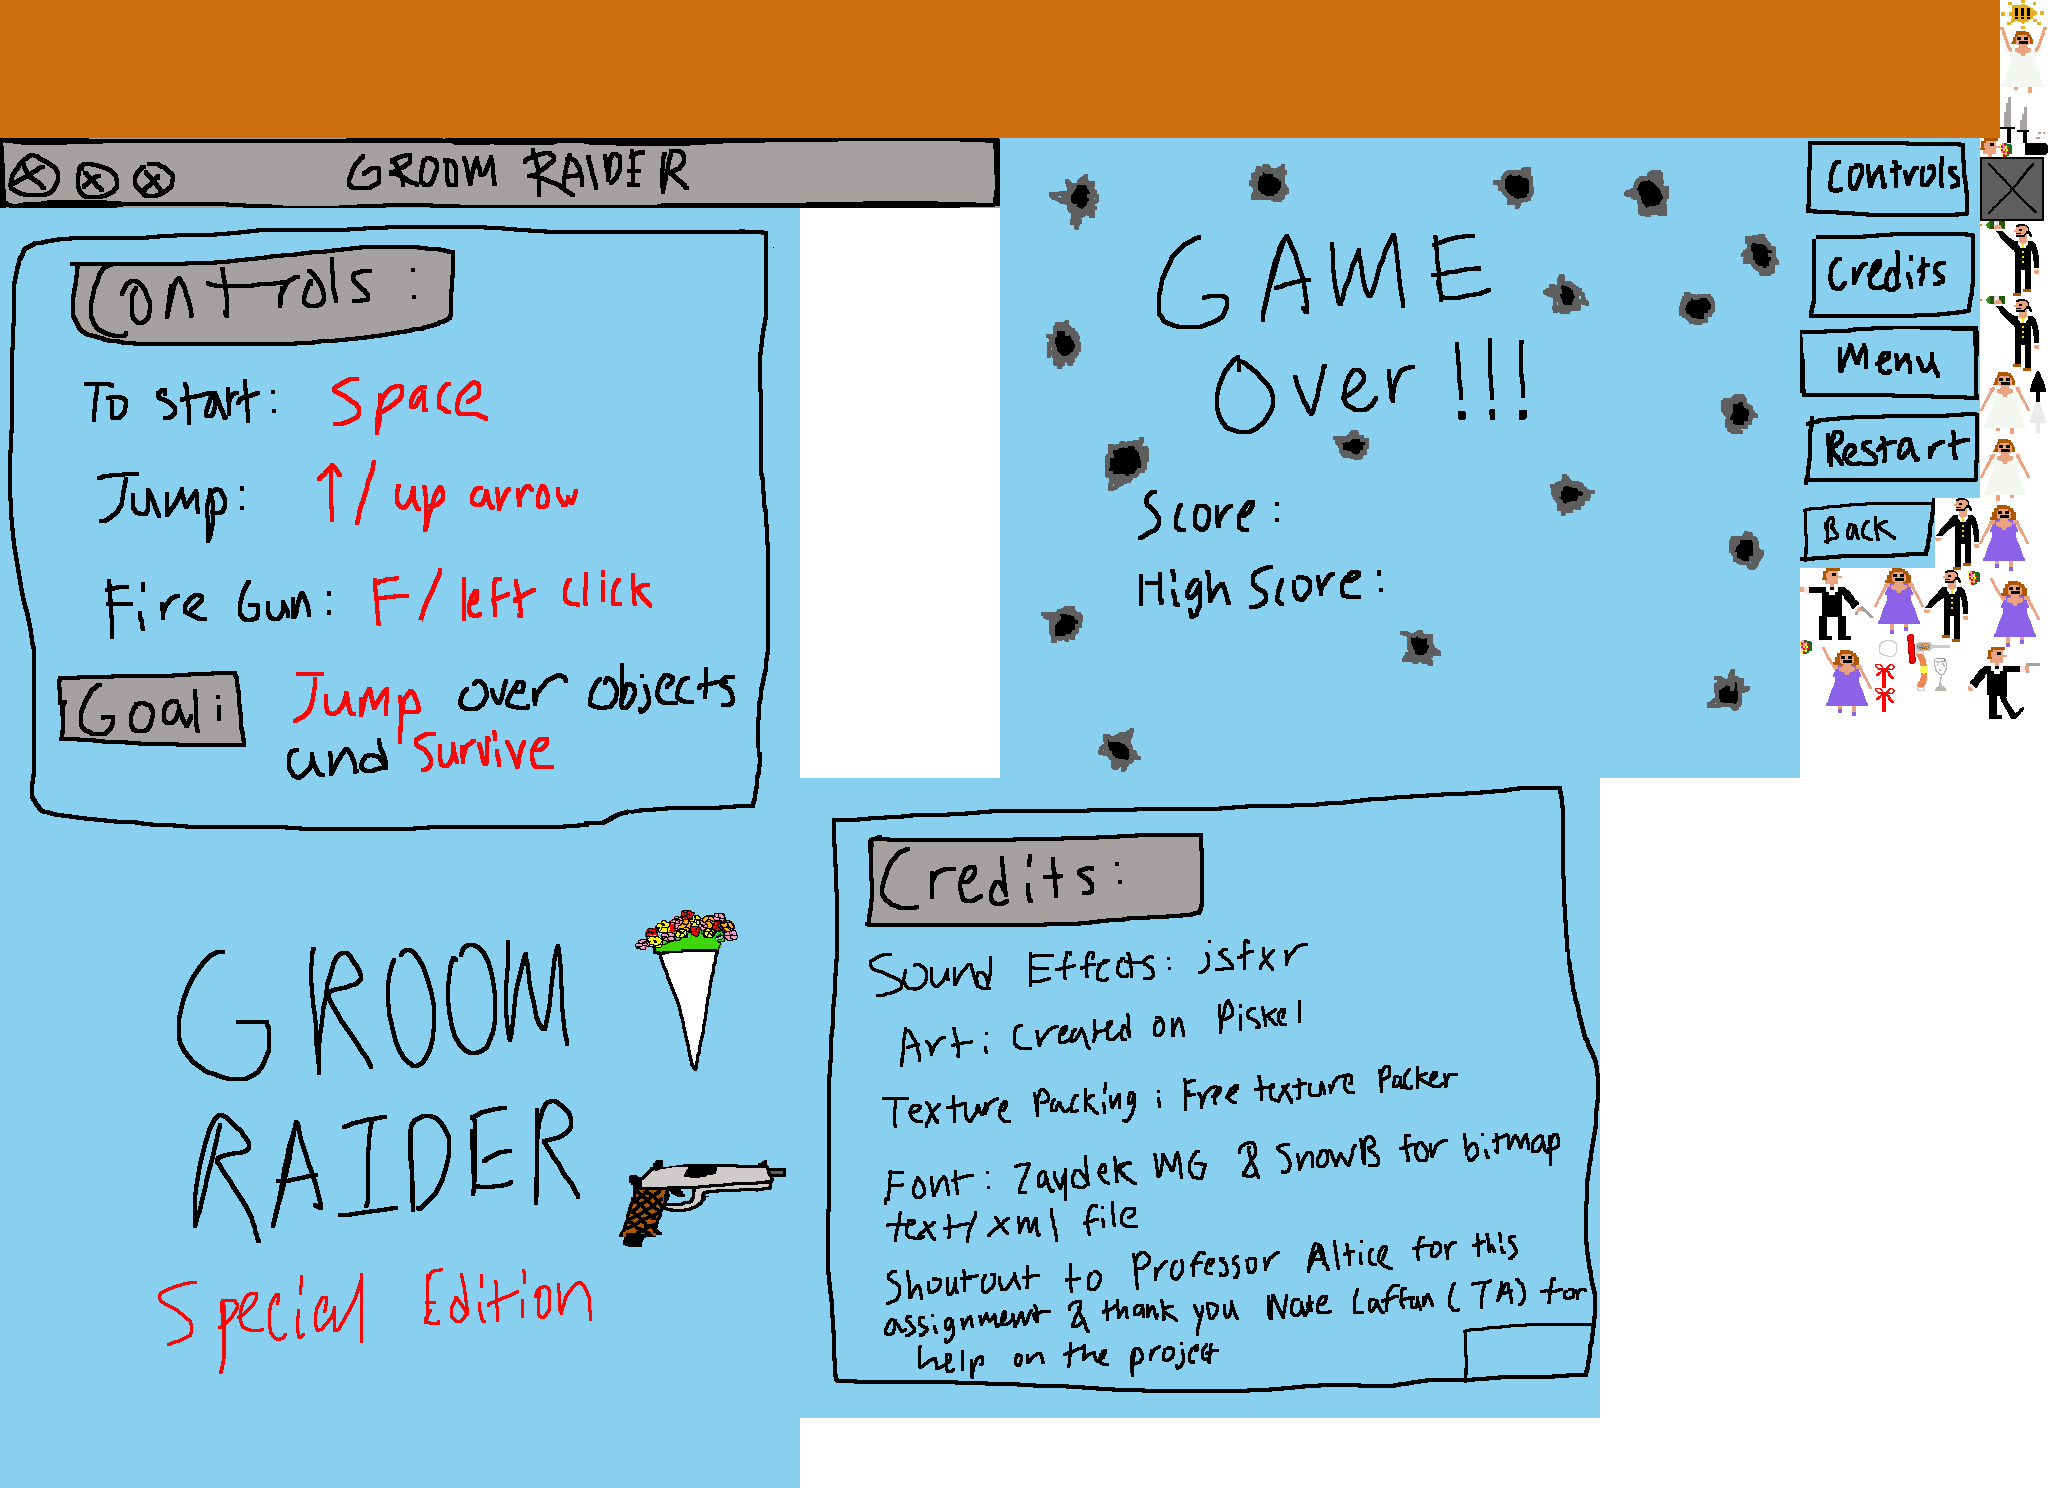 GROOM RAIDER
Controls:
To start: Space
Jump: ↑/ up arrow
Fire Gun: F/ left click
Goal: Jump over objects
and Survive
GAME
Over!!!
Score:
High Score:
Controls
Credits
Menu
Restart
Back
GROOM
RAIDER
Special Edition
Credits:
Sound Effects: jsfxr
Art: Created on Piskel
Texture Packing: Free texture Packer
Font: Zaydek MG & SnowB for bitmap
text/xml file
Shoutout to Professor Altice for this
assignment & thank you Nate Laffan (TA) for
help on the project